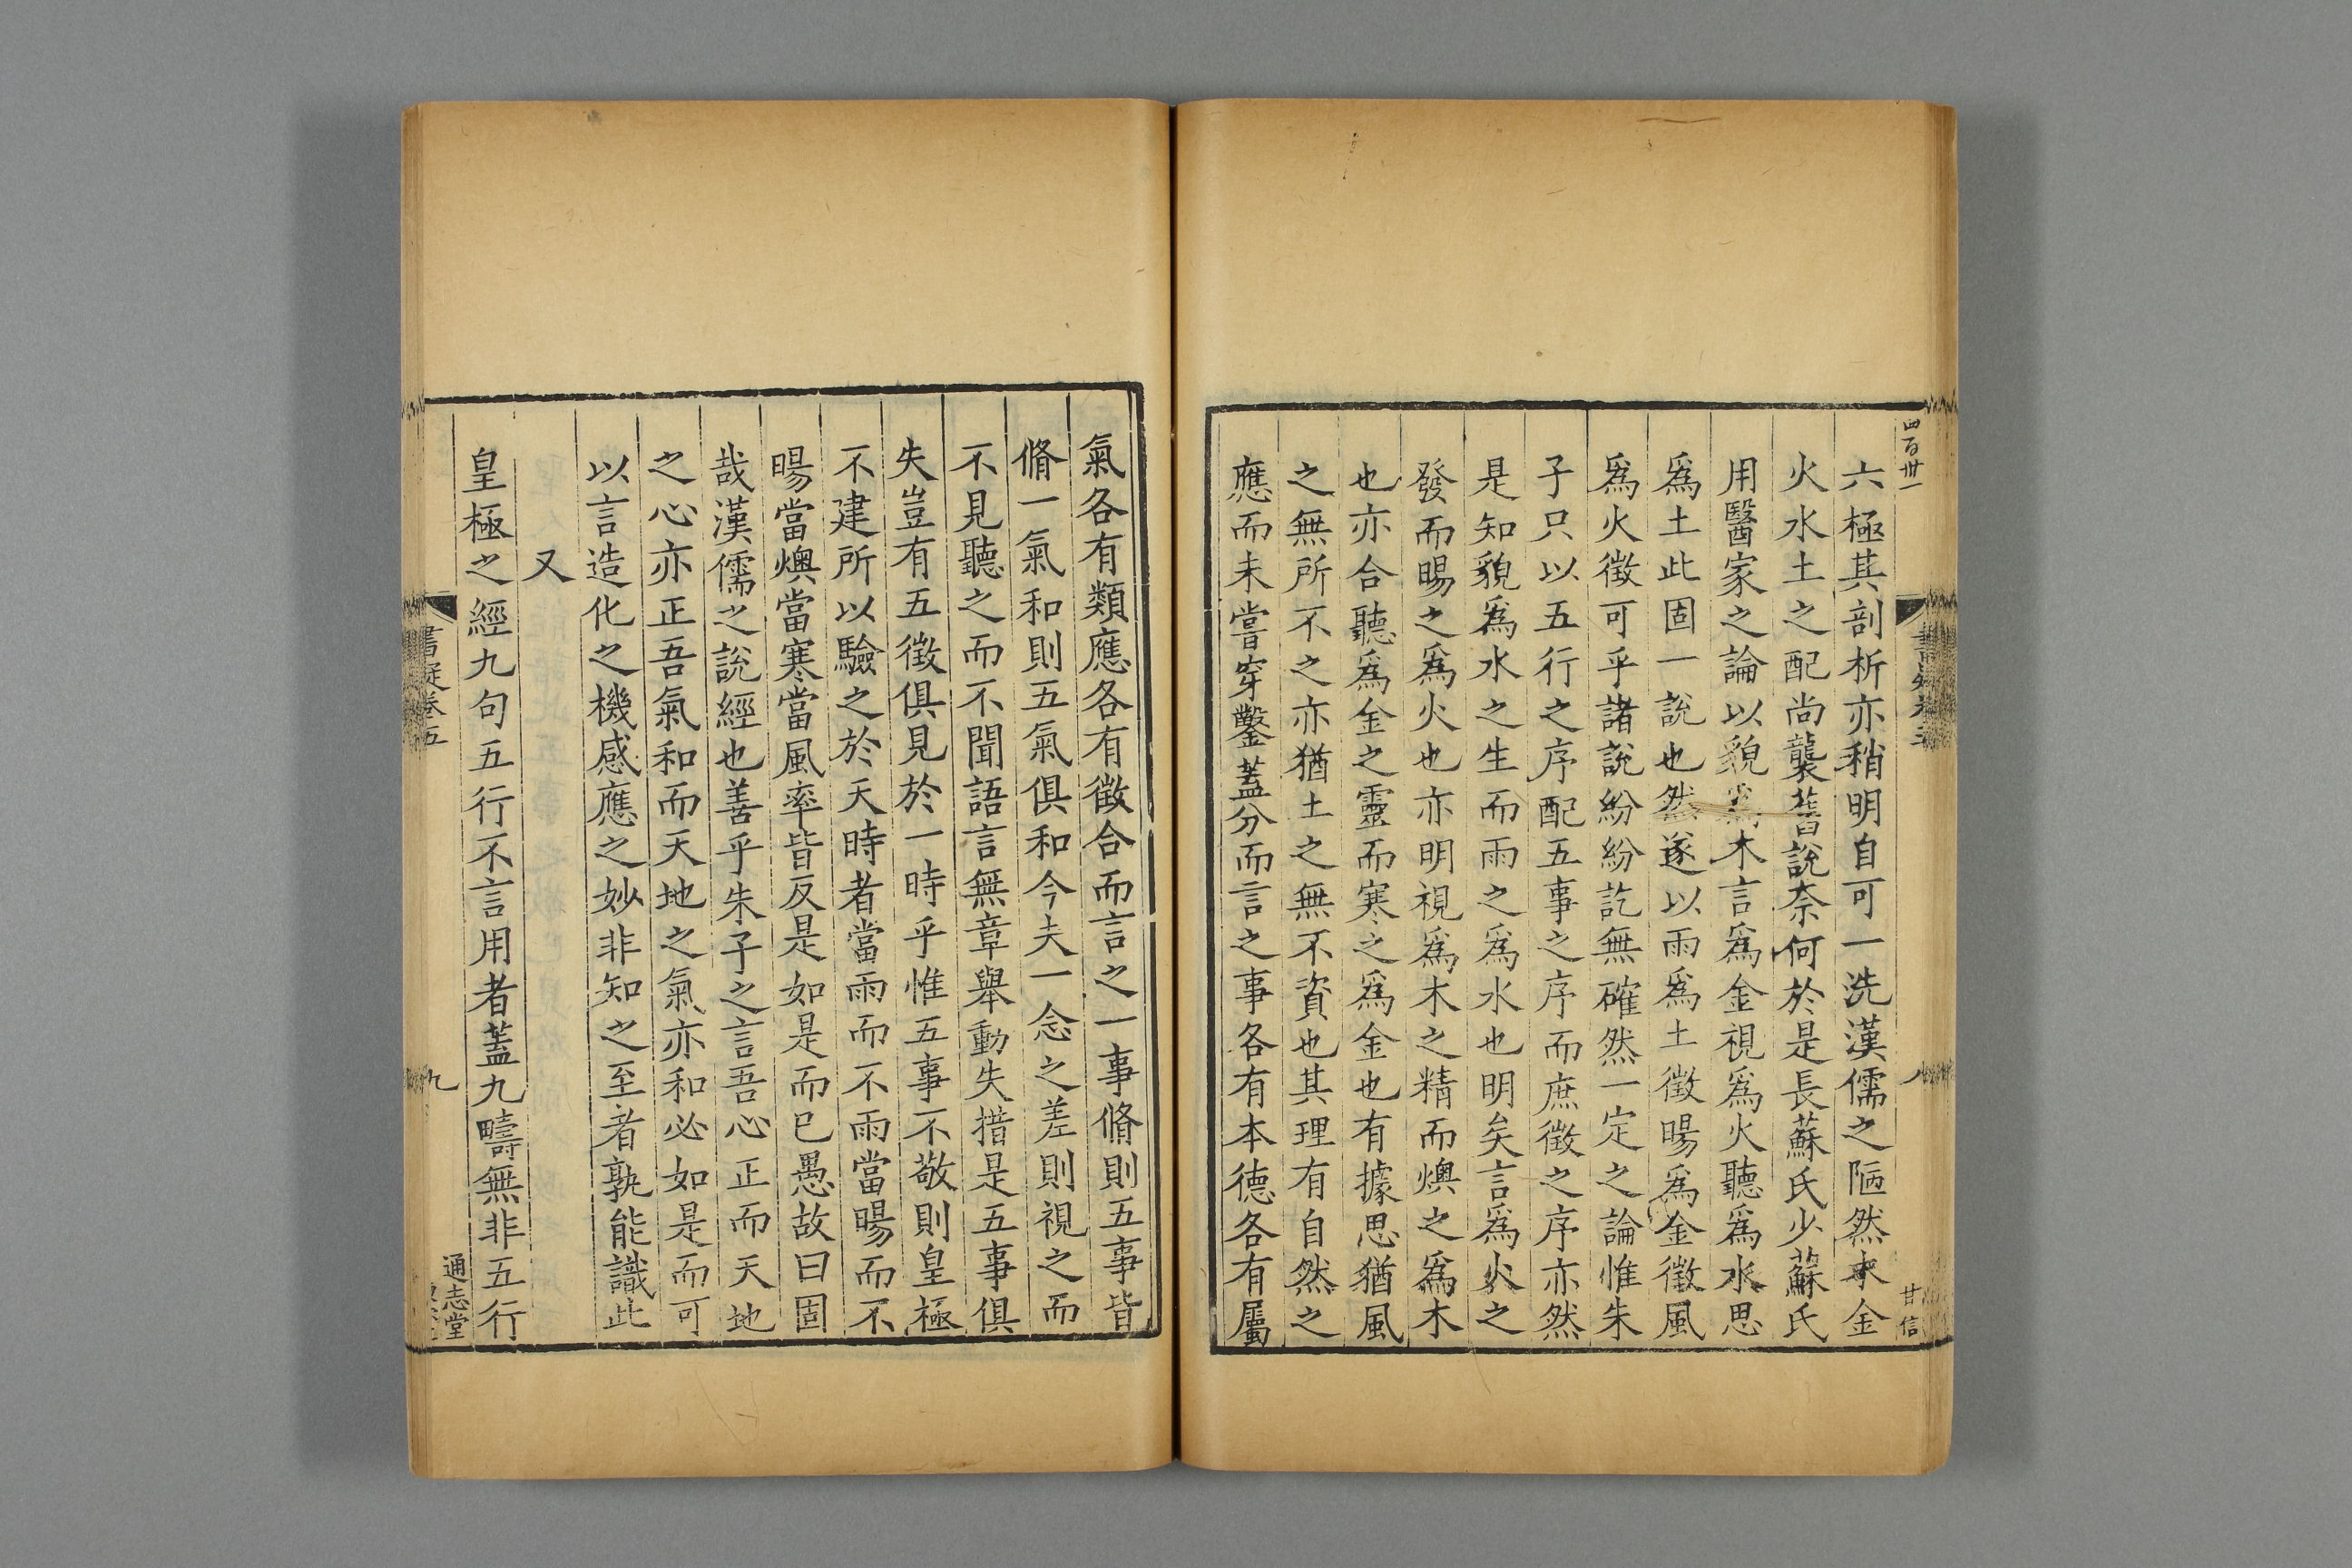 四百卅一
六極其剖析亦稍明自可一洗漢儒之陋然木金
火水土之配尚襲舊說柰何於是長蘇氏少蘇氏
用醫家之論以貌爲木言爲金視爲火聽爲水思
爲土此固一說也然遂以雨爲土徵暘爲金徵風
爲火徵可乎諸說紛紛訖無確然一定之論惟朱
子只以五行之序配五事之序而庶徵之序亦然
是知貌爲水之生而雨之爲水也明矣言爲火之
發而暘之爲火也亦明視爲木之精而燠之爲木
也亦合聽爲金之靈而寒之爲金也有據思猶風
之無所不之亦猶土之無不資也其理有自然之
應而未嘗穿鑿蓋分而言之事各有本德各有屬
八
甘信
氣各有類應各有徵合而言之一事脩則五事皆
脩一氣和則五氣俱和今夫一念之差則視之而
不見聽之而不聞語言無章舉動失措是五事俱
失豈有五徵俱見於一時乎惟五事不敬則皇極
不建所以驗之於天時者當雨而不雨當暘而不
暘當燠當寒當風率皆反是如是而已愚故曰固
哉漢儒之說經也善乎朱子之言吾心正而天地
之心亦正吾氣和而天地之氣亦和必如是而可
以言造化之機感應之妙非知之至者孰能識此
又
皇極之經九句五行不言用者蓋九疇無非五行
書疑卷五
九
通志堂